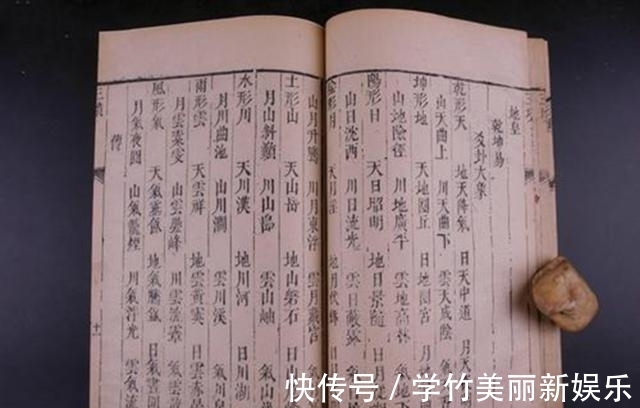 地皇
乾坤易
爻卦大象
乾形天 地天降氣 日天中道 月天
山天曲上 川天曲下 雲天成陰 氣
坤形地 天地圓丘 日地圜宮 月
山地險徑 川地廣平 雲地高林
陽形日 天日昭明 地日景隨 月
山日沈西 川日流光 雲日蔽
形月 天月淫 地月伏
山月升騰 川月東浮 雲月藏宮
土形山 天山岳 地山磐石 日
月山斜巔 川山島 雲山岫 氣山
水形川 天川漢 地川河 日川湖
月川曲池 山川澗 雲川溪 氣川
雨形雲 天雲祥 地雲黃 日雲
月雲素雯 山雲疊峰 川雲
風形氣 天氣垂氤 地氣騰氳 日氣晝圍
月氣夜圓 山氣籠煙 川氣浮光
傳
快传号 / 学竹美丽新娱乐